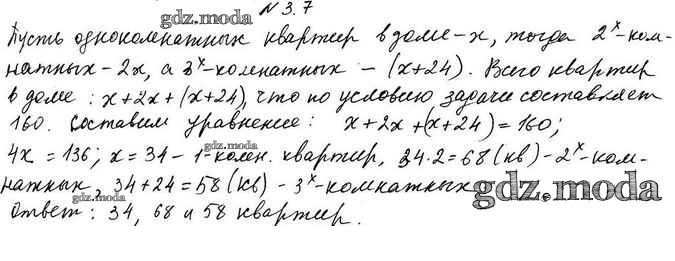 N 3.7
gdz.moda
Пусть однокомнатных квартир в доме - х, тогда 2ˣ-ком-
натных - 2х, а 3ˣ-комнатных - (х+24). Всего квартир
в доме : х+2х+(х+24), что по условию задачи составляет
160. Составим уравнение: х+2х+(х+24)=160;
gdz.moda
4х = 136; х = 34 - 1-комн. квартир, 34·2=68 (кв) - 2ˣ-ком-
натных, 34+24=58 (кв) - 3ˣ-комнатных
gdz.moda
gdz.moda
Ответ: 34, 68 и 58 квартир.